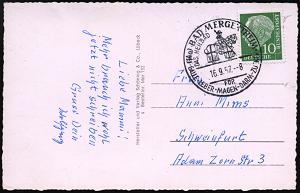 Liebe Mammi!
Mehr brauch ich wohl
jetzt nicht schreiben
Gruss Dein
Hersteller und Verlag Schöning & Co., Lübeck
BAD MERGENTHEIM
16.9.57.-8
FÜR
LEBER-MAGEN-DARM-
DEUTSCHE BUNDESPOST
10
Frau
Anni Mims
Schweinfurt
Adam Zorn Str 3